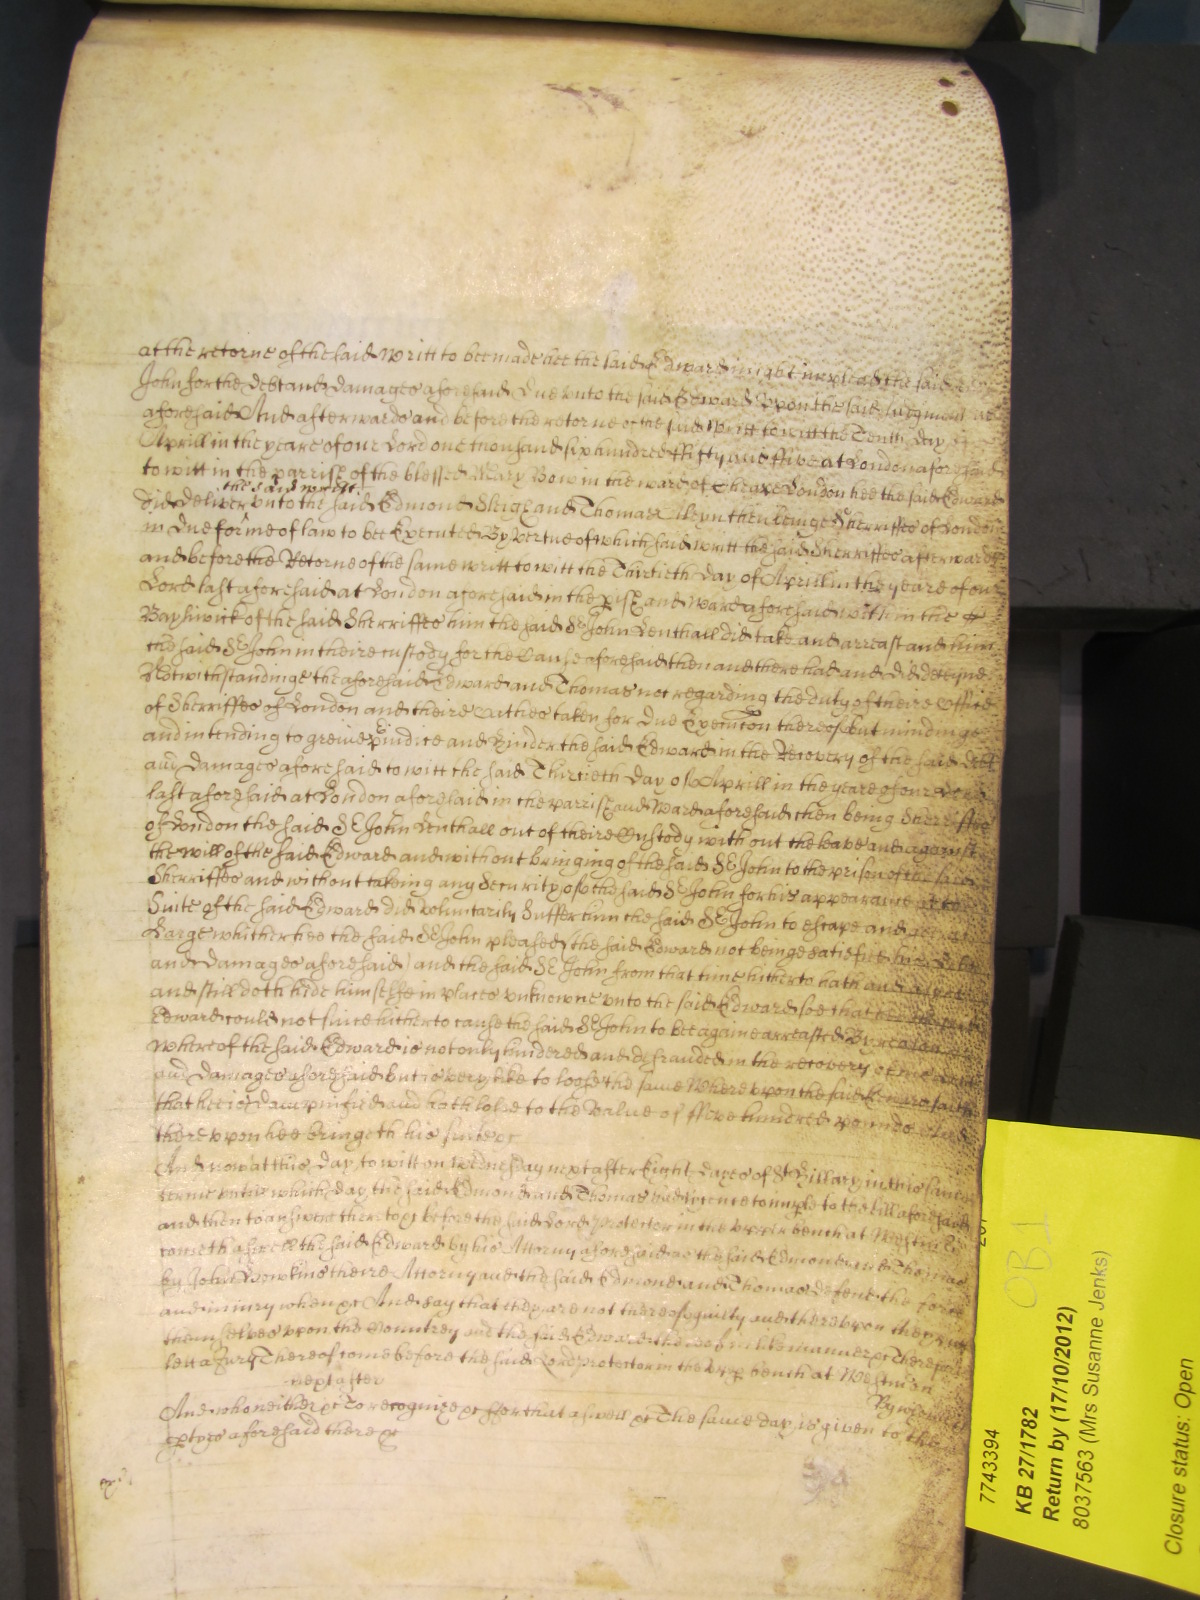 at the retorne of the said Writt to bee made hee the said Edward might impleade the said
John for the debt and damages aforesaid due unto the said Edward upon the said Judgment as
aforesaid And afterwards and before the retorne of the said Writt to witt the Tenth day of
Aprill in the yeare of our Lord one thousand six hundred ffifty and ffive at London aforesaid
to witt in the parrish of the blessed Mary Bow in the ward of Cheape London hee the said Edward
the said writt
did deliver unto the said Edmond Sleigh and Thomas Aleyn then beinge Sherriffes of London
in due forme of law to bee Executed By vertue of which said writt the said Sherriffes afterwards
and before the Retorne of the same writt to witt the Thirtieth day of Aprill in the yeare of our
Lord last aforesaid at London aforesaid in the pish and ward aforesaid within the
Bayliwick of the said Sherriffes him the said Sr John Lenthall did take and arreast and him
the said Sr John in theire custody for the Cause aforesaid then and there had and did deteyne
Notwithstandinge the aforesaid Edward and Thomas not regarding the duty of theire Office
of Sherriffes of London and theire Oathes taken for due Execucon thereof but mindinge
and intending to greive pjudice and hinder the said Edward in the Recovery of the said debt
and damages aforesaid to witt the said Thirtieth day of Aprill in the yeare of our Lord
last aforesaid at London aforesaid in the parrish and Ward aforesaid then being Sherriffes
of London the said Sr John Lenthall out of theire Custody without the leave and against
the will of the said Edward and without bringing of the said Sr John to the prison of the said
Sherriffes and without takeing any Security of the said Sr John for his appearance at the
Suite of the said Edward did voluntarily Suffer him the said Sr John to escape and goe at
Large whither hee the said Sr John pleased (the said Edward not beinge satisfied his debt
and damages aforesaid) and the said Sr John from that time hitherto hath and
and still doth hide himselfe in places unknowne unto the said Edward soe that hee the said
Edward could not since hitherto cause the said Sr John to bee againe arreasted By reason
whereof the said Edward is not only hindered and defrauded in the recovery of his debt
and damages aforesaid but is very like to loose the same Whereupon the said Edward saith
that hee is dampnified and hath losse to the value of ffive hundred pounds And
thereupon hee bringeth his suite &c
And now att this day to witt on Wednesday next after Eight dayes of St Hillary in this same
terme untill which day the said Edmond and Thomas had licence to imple to the bill aforesaid
and then to answere thereto &c before the said Lord Protector in the upper bench at Westmr
cometh aswell the said Edward by his Attorny aforesaid as the said Edmond and Thomas
by John Hewkins theire Attorny and the said Edmond and Thomas defend the force
and iniury when &c And say that they are not thereof guilty and thereupon they putt
themselves upon the Countrey and the said Edward thereof in like manner &c Therefore
lett a Jury Thereof come before the said Lord protector in the upp bench at Westmr on
next after
By whome
And who neither &c To recognize &c ffor that aswell &c The same day is given to the
ptyes aforesaid there &c
7743394
KB 27/1782
Return by (17/10/2012)
8037563 (Mrs Susanne Jenks)
Closure status: Open
OB 1